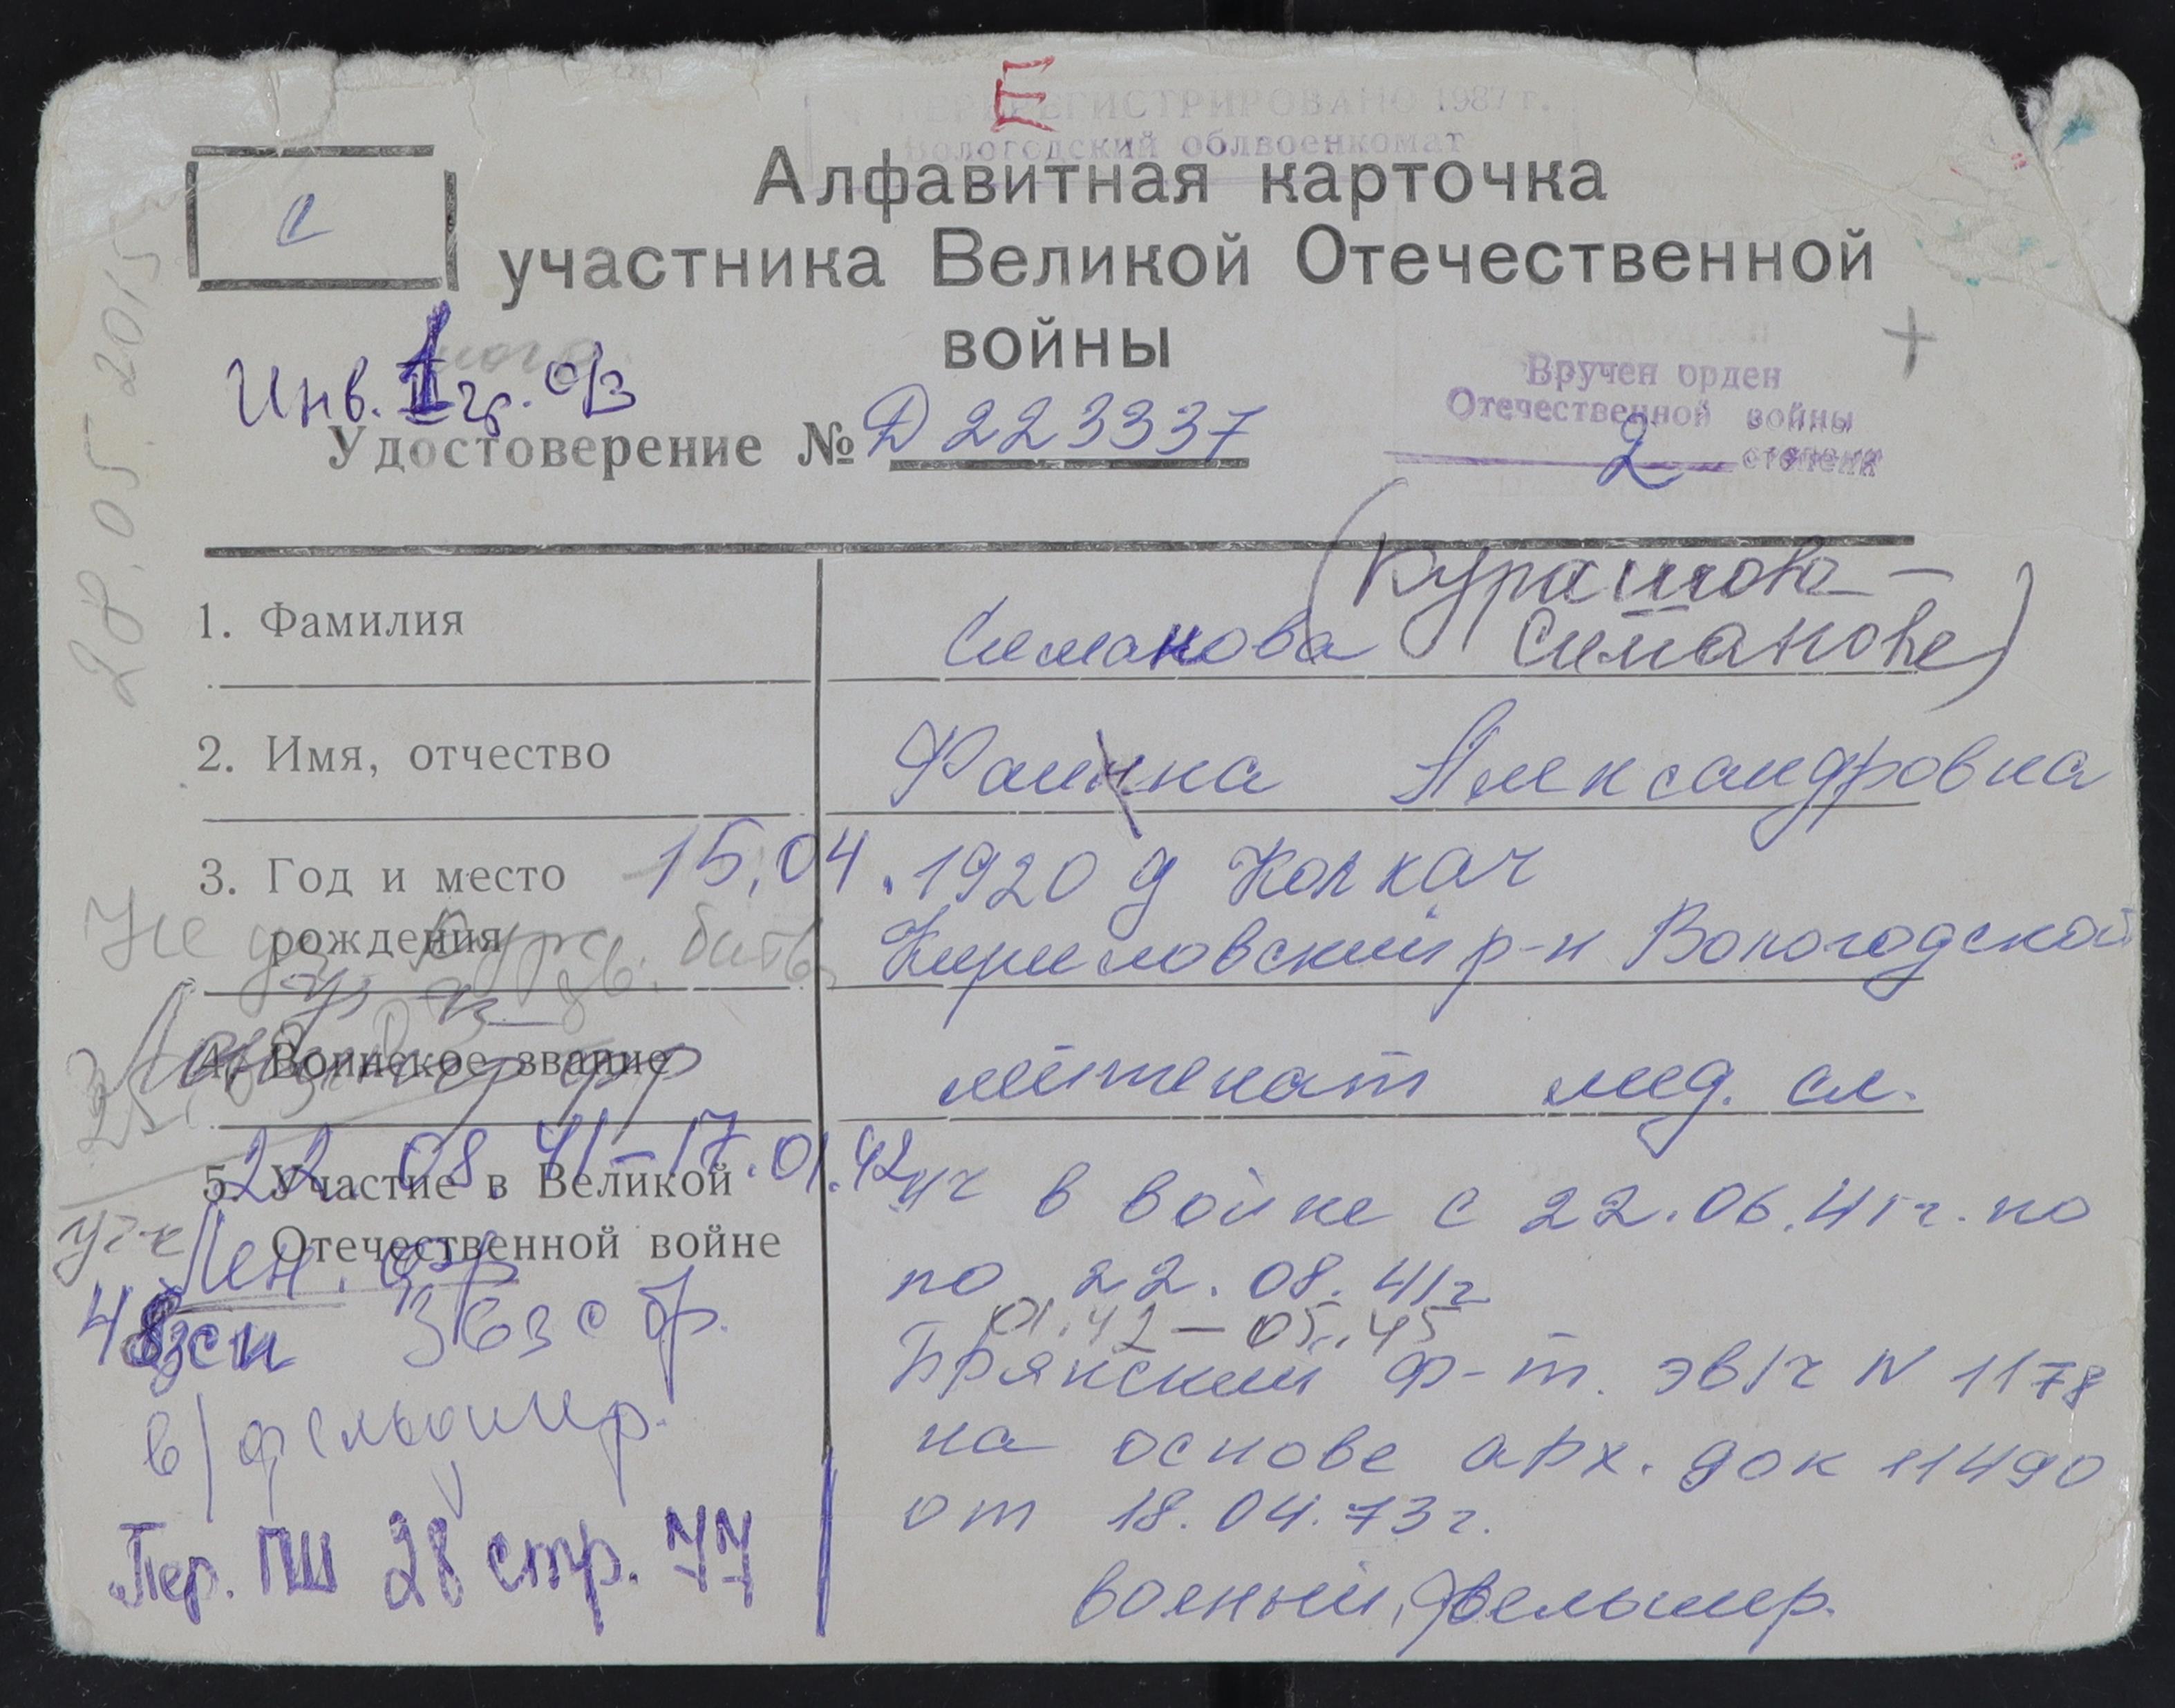 Е
ПЕРЕРЕГИСТРИРОВАНО 1987 г.
Вологодский облвоенкомат
Алфавитная карточка
участника Великой Отечественной
войны
Инв. гр. о/з
Вручен орден
Отечественной войны
2 степени
Удостоверение № Д 223337
28.05.2015
(Курашова-
1. Фамилия Симанова Симанова)
2. Имя, отчество Фаинна Александровна
3. Год и место 15.04.1920 д Колкач
рождения Кирилловский р-н Вологодской
Не уч. Курж. битв
4. Воинское звание лейтенант мед. сл.
22.08.41-17.01.42
5. Участие в Великой уч в войне с 22.06.41 г. по
Отечественной войне по 22.08.41 г
Лен. фр
01.42-05.45
48 зсп 36 зсбр. Брянский ф-т. эв/г N 1178
в/фельдшер. на основе арх. док 11490
от 18.04.73 г.
Пер. ПШ 28 стр. 77
военный фельдшер.